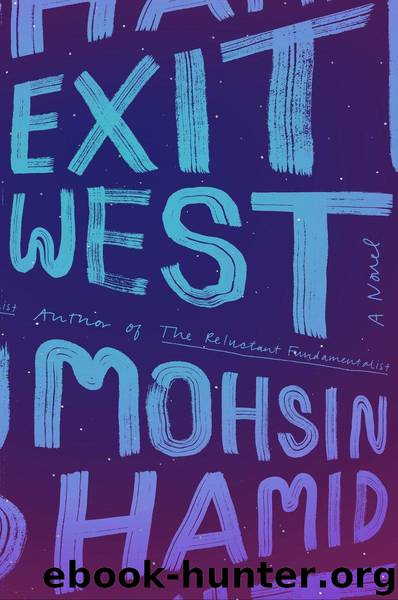 HAMI
EXIT
WEST
A Novel
ist
Author of The Reluctant Fundamentalist
MOHSIN
HAMID
ebook-hunter.org